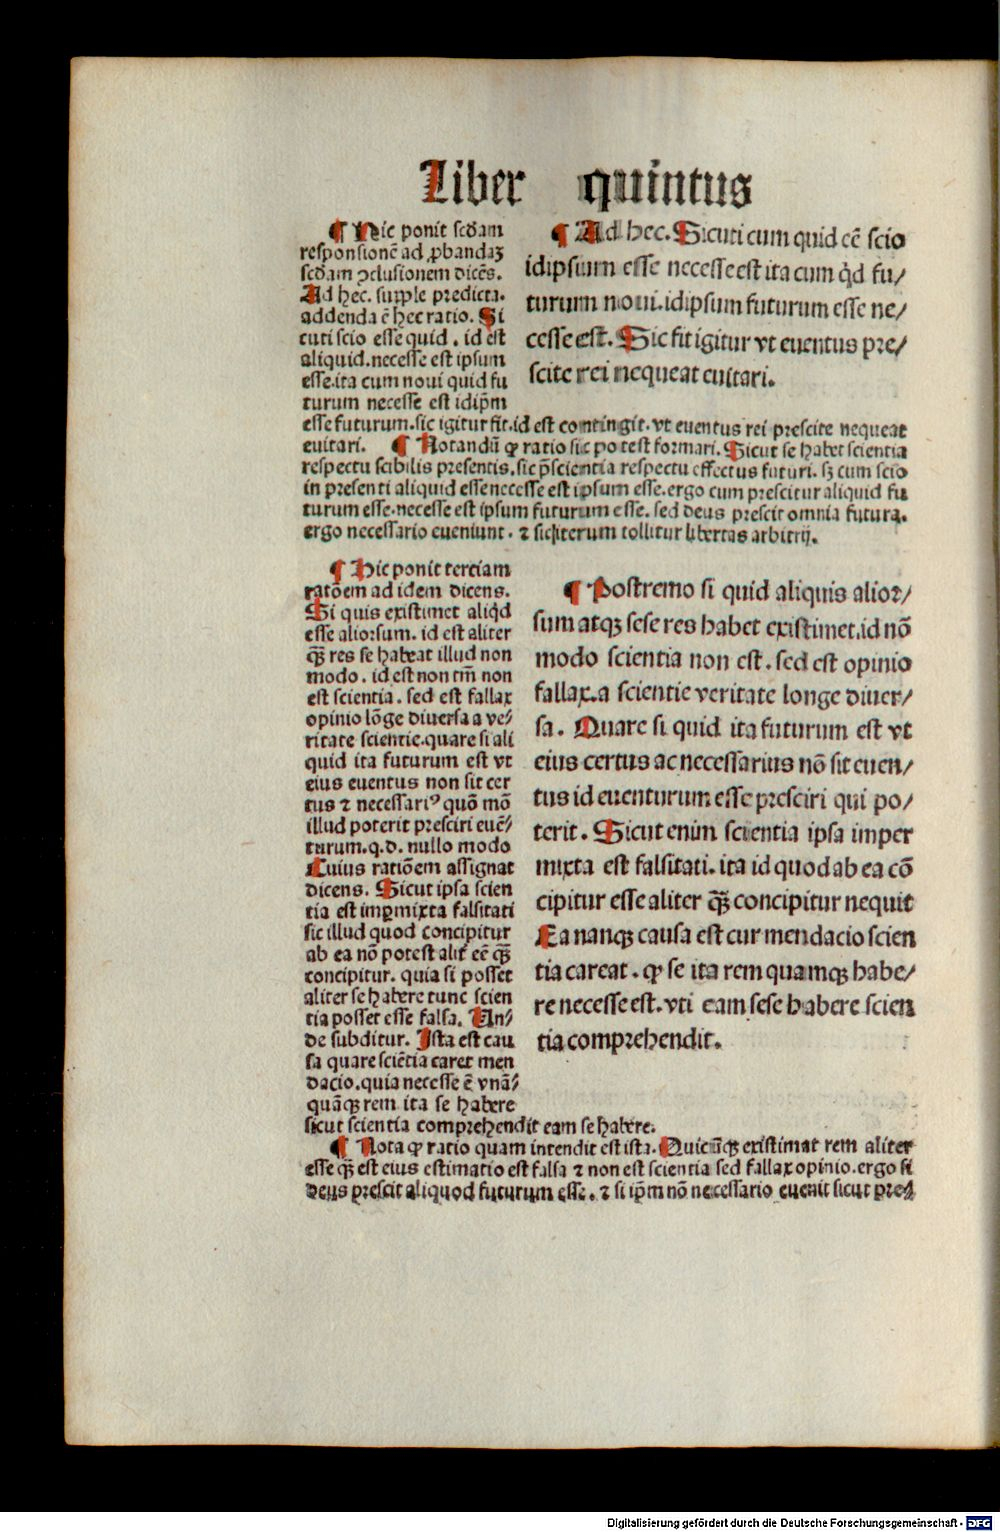 Liber quintus
¶ Hic ponit scḋam
responsionē ad ꝓbandaꝫ
scḋam ꝯclusionem dicēs.
Ad hec. supple predicta.
addenda ē hec ratio. Si
cuti scio esse quid . id est
aliquid.necesse est ipsum
esse.ita cum noui quid fu
turum necesse est idip̄m
esse futurum.sic igitur fit.id est contingit.vt euentus rei prescite nequeat
euitari. ¶ Notandū ꝙ ratio sic potest formari. Sicut se habet scientia
respectu scibilis presentis.sic p̄scientia respectu effectus futuri. sꝫ cum scio
in presenti aliquid esse necesse est ipsum esse.ergo cum prescitur aliquid fu
turum esse.necesse est ipsum futurum esse. sed deus prescit omnia futura.
ergo necessario eueniunt. ⁊ sic iterum tollitur libertas arbitrij.
¶ Ad hec. Sicuti cum quid eē scio
idipsum esse necesse est ita cum qͥd fu/
turum noui.idipsum futurum esse ne/
cesse est. Sic fit igitur vt euentus pre/
scite rei nequeat euitari.
¶ Hic ponit terciam
ratōem ad idem dicens.
Si quis existimet aliqͥd
esse aliorsum. id est aliter
qꝫ̄ res se habeat illud non
modo . id est non tm̄ non
est scientia . sed est fallax
opinio lōge diuersa a ve/
ritate scientie.quare si ali
quid ita futurum est vt
eius euentus non sit cer
tus ⁊ necessariꝰ quō mō
illud poterit presciri euē/
turum.q.d. nullo modo
Cuius ratiōem assignat
dicens. Sicut ipsa scien
tia est imꝑmixta falsitati
sic illud quod concipitur
ab ea nō potest alit̄ eē qꝫ̄
concipitur. quia si posset
aliter se habere tunc scien
tia posset esse falsa. Un/
de subditur. Ista est cau
sa quare sciētia caret men
dacio.quia necesse ē vnā/
quāqꝫ rem ita se habere
sicut scientia comprehendit eam se habere.
¶ Postremo si quid aliquis alior/
sum atqꝫ sese res habet existimet.id nō
modo scientia non est . sed est opinio
fallax.a scientie veritate longe diuer/
sa . Quare si quid ita futurum est vt
eius certus ac necessarius nō sit euen/
tus id euenturum esse presciri qui po/
terit . Sicut enim scientia ipsa imper
mixta est falsitati. ita id quod ab ea cō
cipitur esse aliter qꝫ̄ concipitur nequit
Ea nanqꝫ causa est cur mendacio scien
tia careat . ꝙ se ita rem quamqꝫ habe/
re necesse est. vti eam sese habere scien
tia comprehendit.
¶ Nota ꝙ ratio quam intendit est ista. Quicūqꝫ existimat rem aliter
esse qꝫ̄ est eius estimatio est falsa ⁊ non est scientia sed fallax opinio.ergo si
deus prescit aliquod futurum esse. ⁊ si ip̄m nō necessario euenit sicut pre/
Digitalisierung gefördert durch die Deutsche Forschungsgemeinschaft - DFG